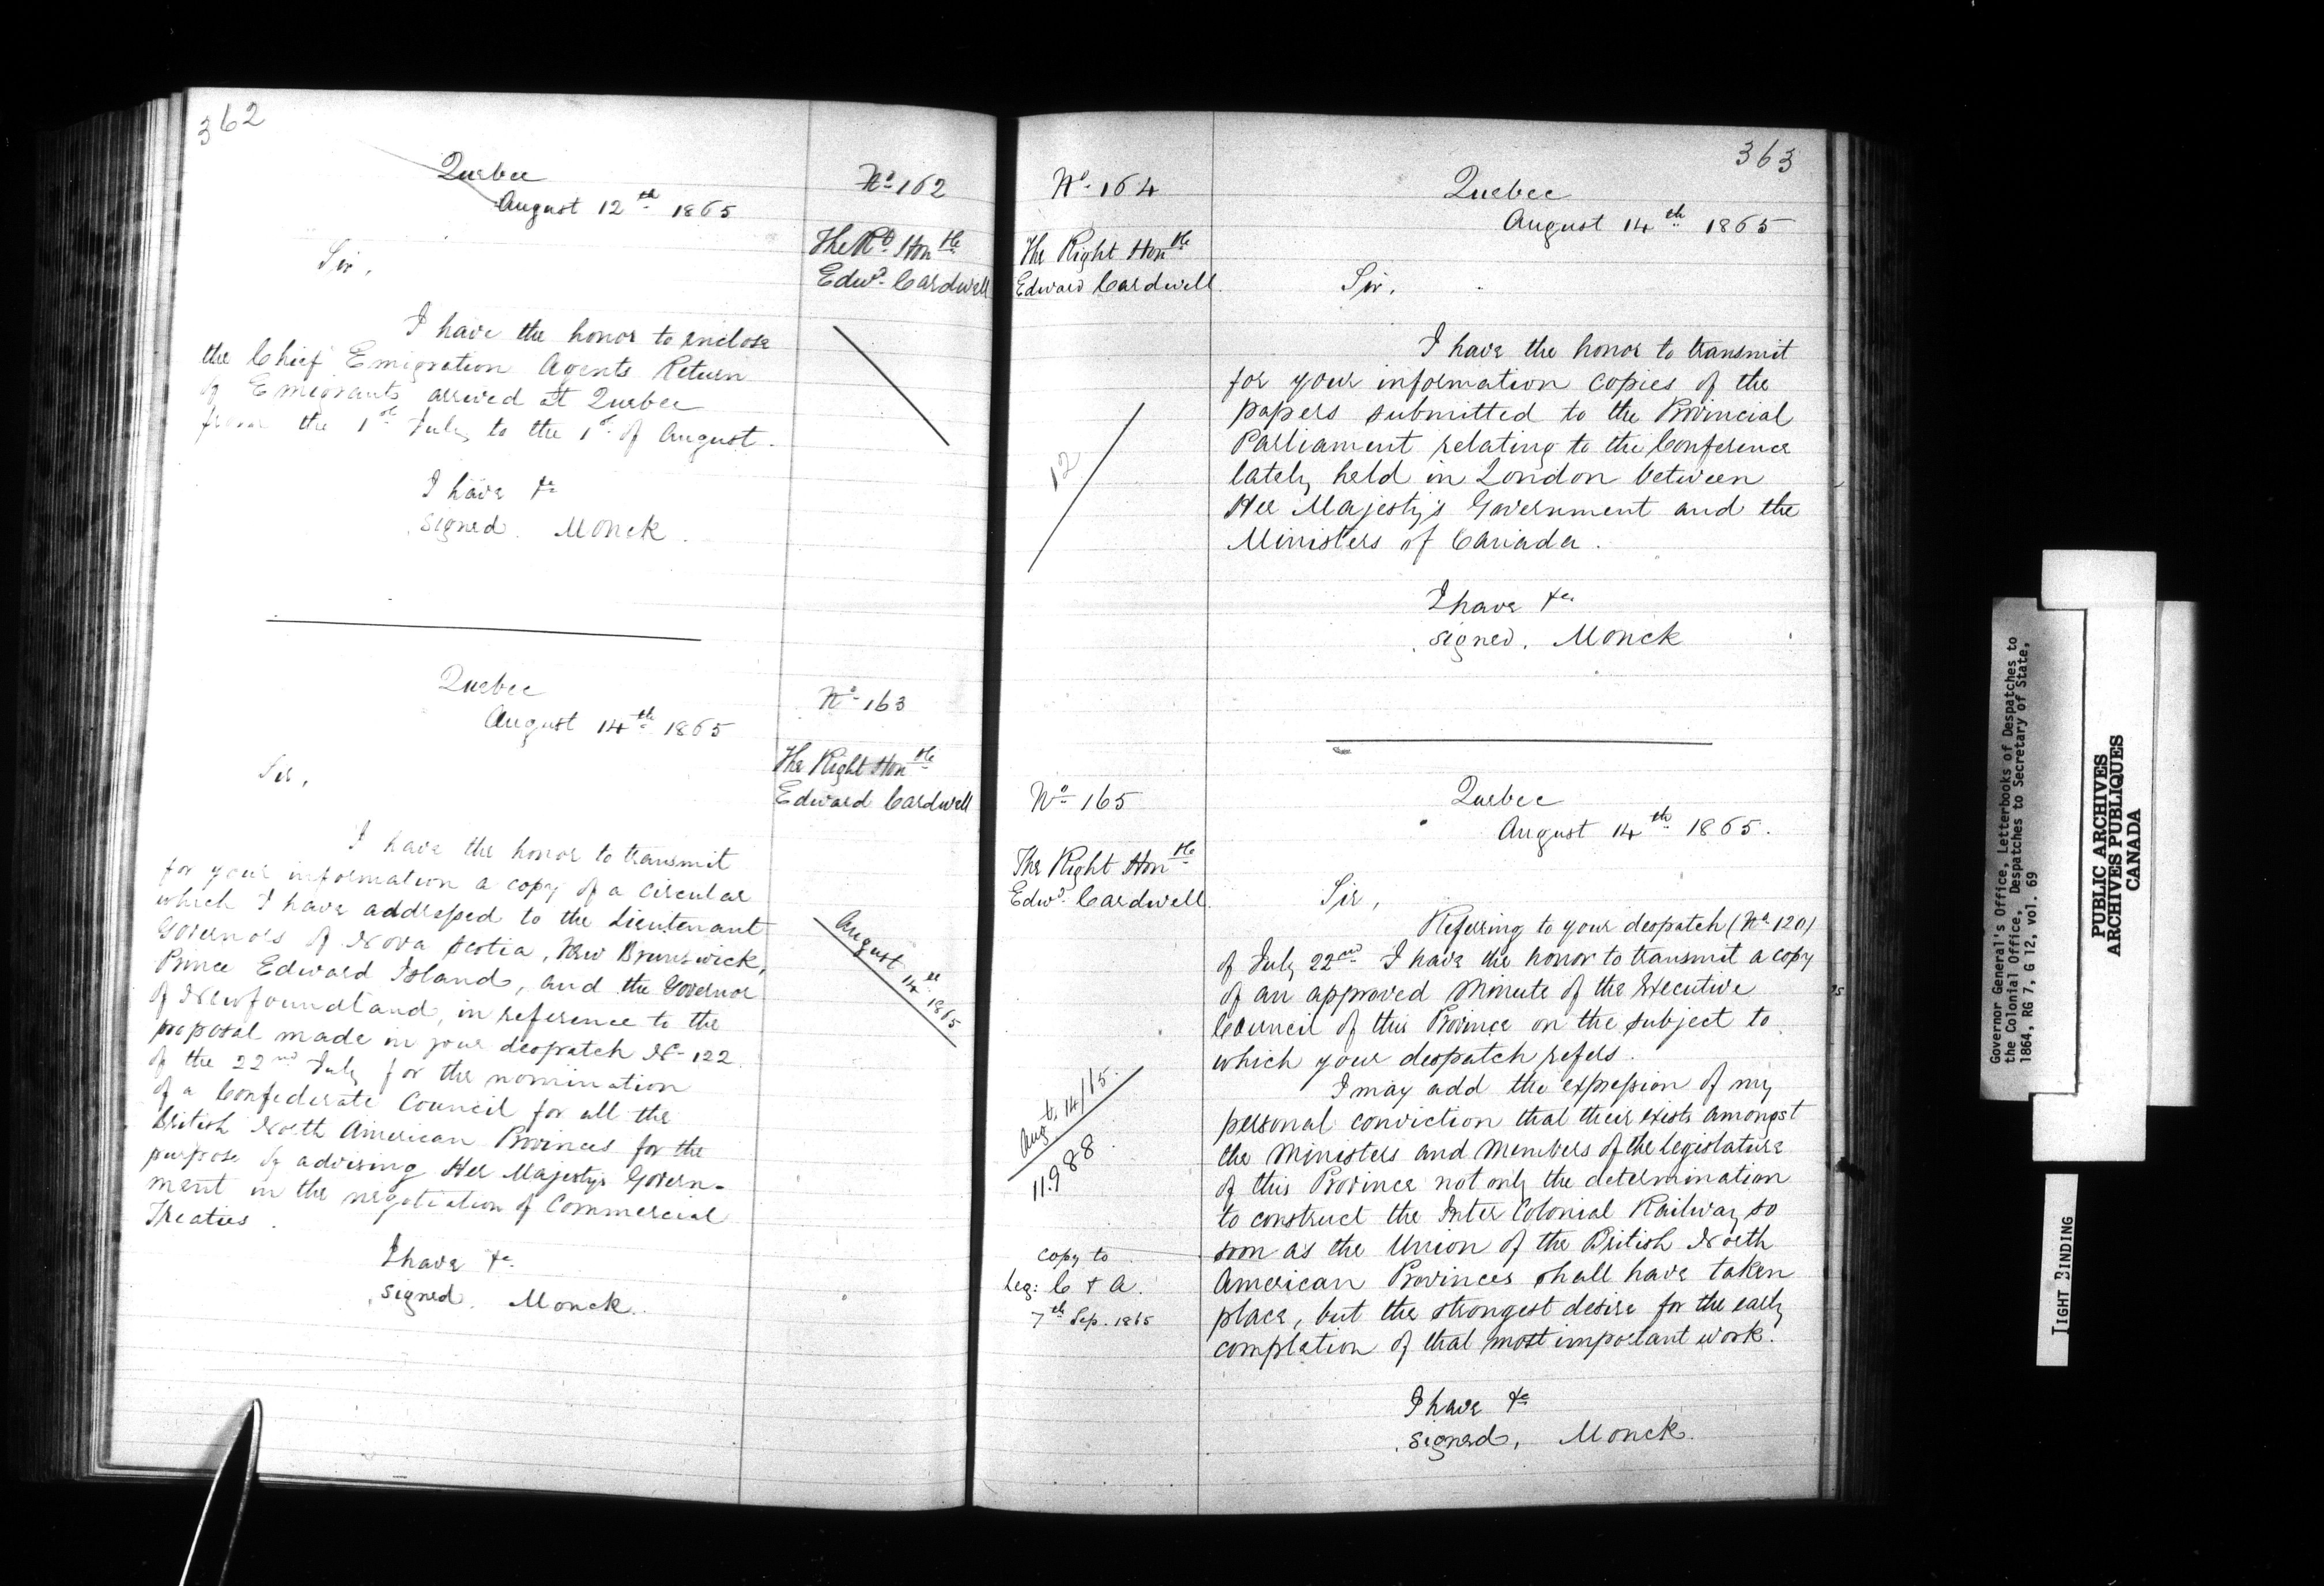 362
Quebec
August 12th 1865
No 162
The Rt Honble
Edwd Cardwell
Sir,
I have the honor to enclose
the Chief Emigration Agents Return
of Emigrants arrived at Quebec
from the 1st July to the 1st of August.
I have &c
signed. Monck.
Quebec
August 14th 1865
No 163
The Right Honble
Edward Cardwell
Sir,
I have the honor to transmit
for your information a copy of a circular
which I have addressed to the Lieutenant
Governors of Nova Scotia, New Brunswick,
Prince Edward Island, and the Governor
of Newfoundland, in reference to the
proposal made in your despatch No 122
of the 22nd July for the nomination
of a Confederate Council for all the
British North American Provinces for the
purpose of advising Her Majestys Govern-
ment in the negotiation of Commercial
Treaties.
August 14th 1865
I have &c
signed. Monck.
363
No 164
The Right Honble
Edward Cardwell.
Quebec
August 14th 1865
Sir,
I have the honor to transmit
for your information copies of the
papers submitted to the Provincial
Parliament relating to the Conference
lately held in London between
Her Majesty's Government and the
Ministers of Canada.
12
I have &c
signed. Monck
No 165
The Right Honble
Edwd Cardwell.
Quebec
August 14th 1865.
Sir,
Referring to your despatch (No 120)
of July 22nd I have the honor to transmit a copy
of an approved Minute of the Executive
Council of this Province on the subject to
which your despatch refers.
I may add the expression of my
personal conviction that their exists amongst
the Ministers and Members of the Legislature
of this Province not only the determination
to construct the Inter Colonial Railway so
soon as the Union of the British North
American Provinces shall have taken
place, but the strongest desire for the early
completion of that most important work.
Augt 14/15.
11988
copy to
Leg: C & A.
7th Sep. 1865
I have &c
signed, Monck.
Governor General's Office, Letterbooks of Despatches to
the Colonial Office, Despatches to Secretary of State,
1864, RG 7, G 12, vol. 69
PUBLIC ARCHIVES
ARCHIVES PUBLIQUES
CANADA
TIGHT BINDING